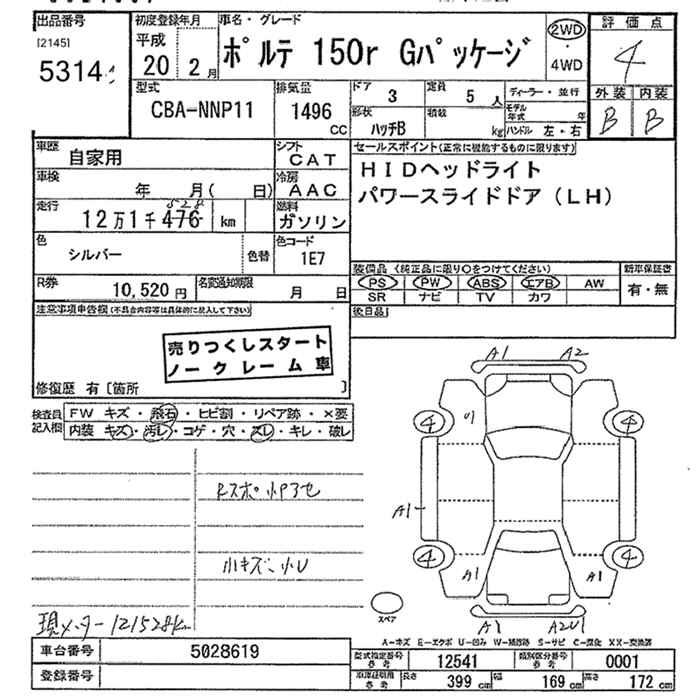 出品番号 初度登録年月 車名・グレード 評価点
[2145] 平成 ポルテ 150r Gパッケージ 2WD 4
5314 20年 2月 ・4WD
型式 排気量 ドア 3 定員 5人 ディーラー・並行 外装 内装
CBA-NNP11 1496 CC 形状 ハッチB 積載 kg モデル年式 年 B B
ハンドル 左・右
車歴 自家用 シフト CAT セールスポイント(正常に機能するものに限ります)
車検 年 月( 日) 冷房 AAC HIDヘッドライト
走行 12万1千476 528 km 燃料 ガソリン パワースライドドア(LH)
色 シルバー 色替 色コード 1E7
R券 10,520円 名変通知期限 月 日
装備品 (純正品に限り○をつけてください) 新車保証書
PS PW ABS エアB AW 有・無
SR ナビ TV カワ
注意事項申告欄(不具合内容等は具体的に記入して下さい) 後日品
売りつくしスタート
ノークレーム車
修復歴 有〔箇所 〕
検査員記入欄 FW キズ・飛石・ヒビ割・リペア跡・×要
内装 キズ・汚レ・コゲ・穴・スレ・キレ・破レ
A1 A2
4 4
A1
4 4
A1 A1
スペア
A1 A2U1
小キズ、小U
現メーター121528km
A-キズ E-エクボ U-凹み W-補修跡 S-サビ C-腐化 XX-交換済
車台番号 5028619 型式指定番号 参考 12541 類別区分番号 参考 0001
登録番号 車庫証明用 参考 長さ 399 cm 幅 169 cm 高さ 172 cm